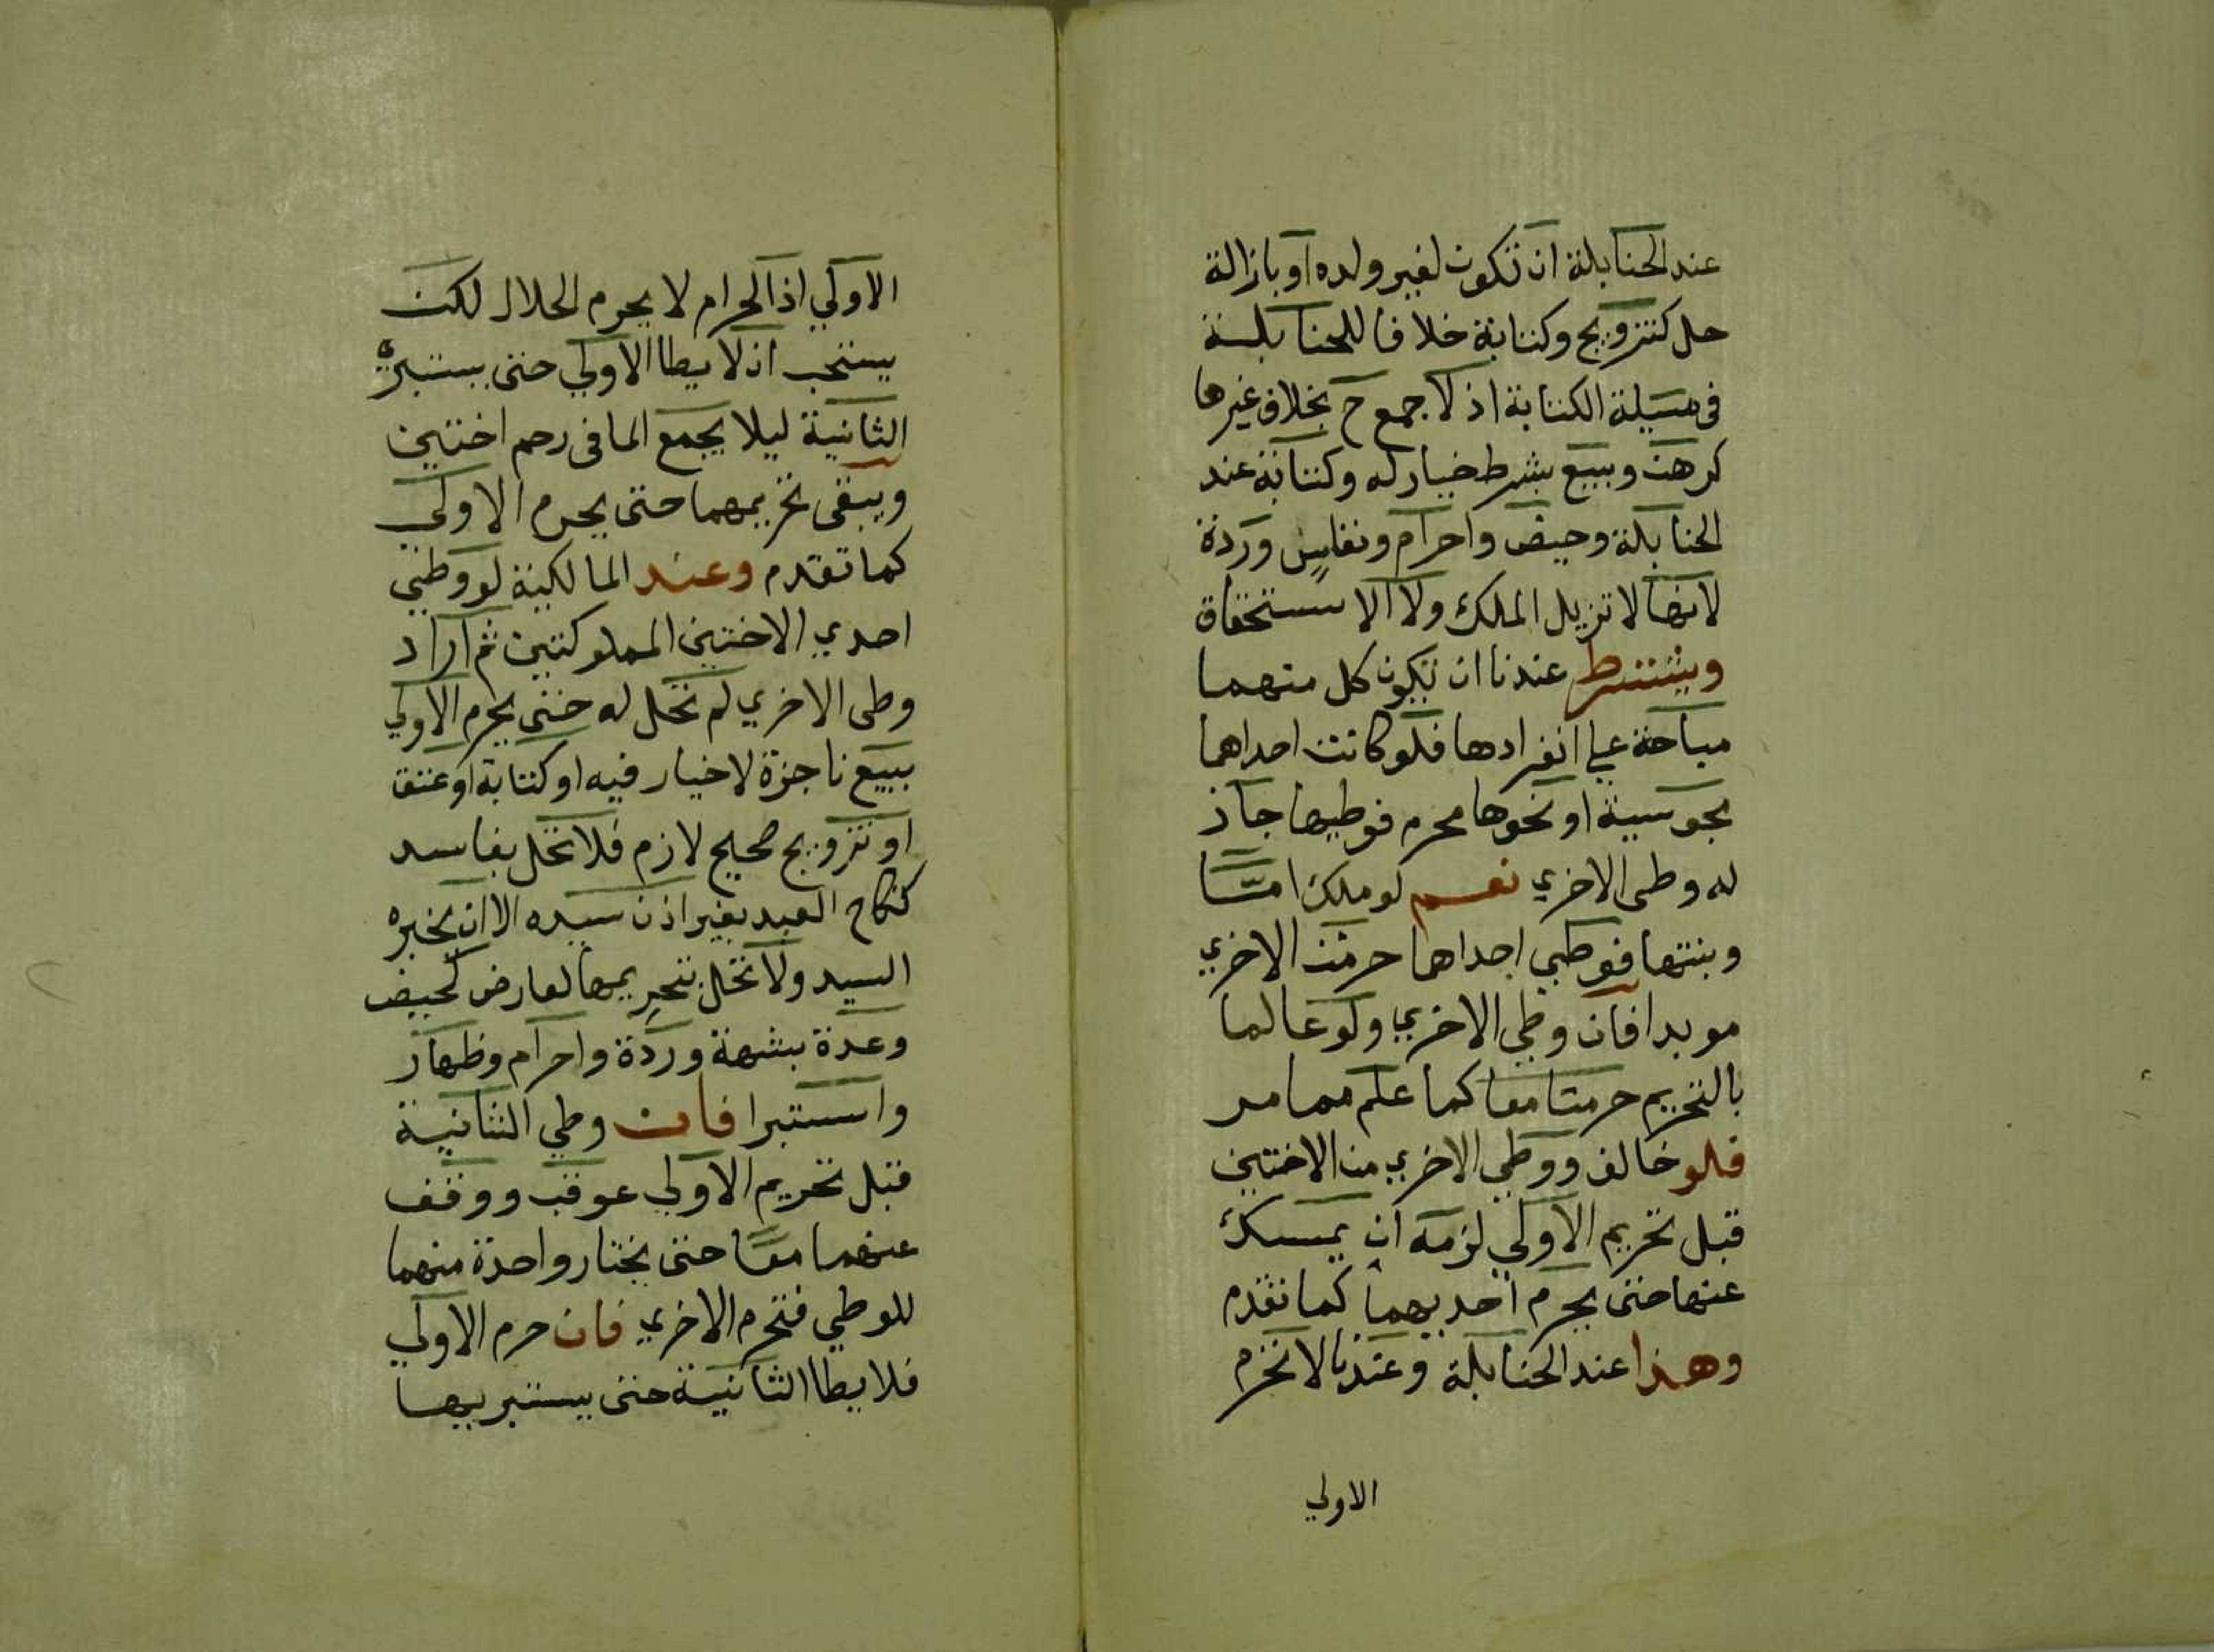 عند الحنابلة ان تكون لغير ولده او بازالة
حل كتزويج وكتابة خلافا للحنابلة
في مسيلة الكتابة اذ لا جمع ح بخلاف غيرها
كرهن وبيع بشرط خيار له وكتابة عند
الحنابلة وحيض واحرام ونفاس وردة
لانها لا تزيل الملك ولا الاستحقاق
ويشترط عندنا ان تكون كل منهما
مباحة علي انفرادها فلو كانت احداهما
مجوسية او نحوها محرم فوطيها جاز
له وطي الاخري نعم لو ملك امتا
وبنتها فوطي احداها حرمت الاخري
موبدا فان وطي الاخري ولو عالما
بالتحريم حرمتا معا كما علم مما مر
فلو خالف ووطي الاخري من الاختين
قبل تحريم الاولي لزمه ان يمسك
عنها حتى يحرم احديهما كما تقدم
وهذا عند الحنابلة وعندنا لا تحرم
الاولي
الاولي اذ الحرام لا يحرم الحلال لكن
يستحب ان لا يطا الاولي حتى يستبرئ
الثانية ليلا يجمع الما في رحم اختين
ويبقى تحريمهما حتى يحرم الاولي
كما تقدم وعند المالكية لو وطئ
احدي الاختين المملوكتين ثم اراد
وطى الاخري لم تحل له حتى يحرم الاولي
ببيع ناجزة لا خيار فيه او كتابة او عتق
او تزويج صحيح لازم فلا تحل بفاسد
كنكاح العبد بغير اذن سيده الا ان يخيره
السيد ولا تحل بتحريمها لعارض كحيض
وعدة بشبهة وردة واحرام وظهار
واستبرا فان وطي الثانية
قبل تحريم الاولي عوقب ووقف
عنهما معا حتى يختار واحدة منهما
للوطي فتحرم الاخري فان حرم الاولي
فلا يطا الثانية حتى يستبريها